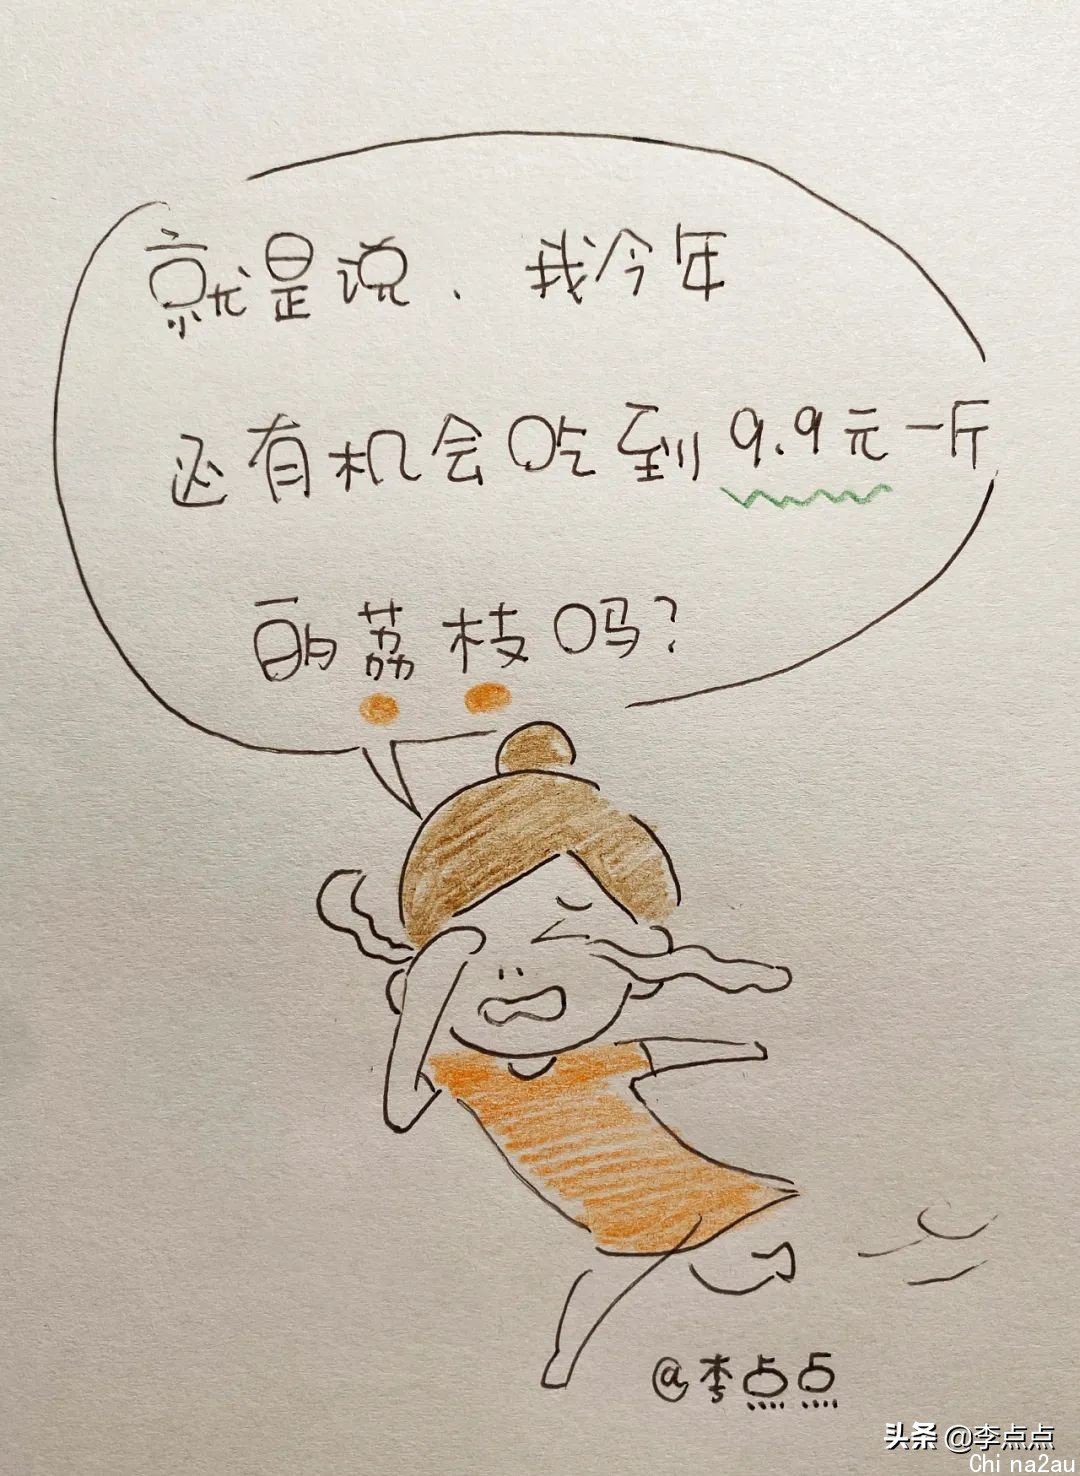 就是说、我今年
还有机会吃到9.9元一斤
的荔枝吗?
@李点点
头条 @李点点
Chi na2au